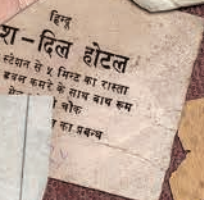 हिन्दू
श-दिल होटल
स्टेशन से ५ मिनट का रास्ता
डबल कमरे के साथ बाथ रूम
चौक
का प्रबन्ध